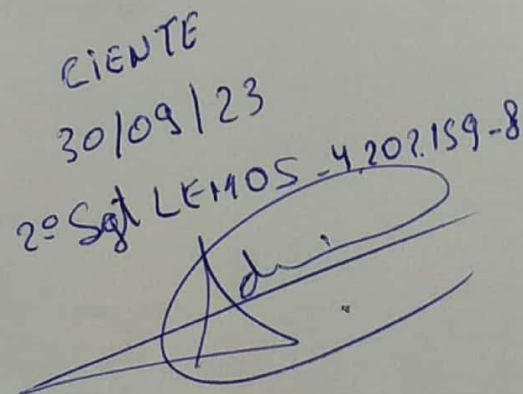 CIENTE
30/09/23
2º Sgt LEMOS - 4.202.159-8